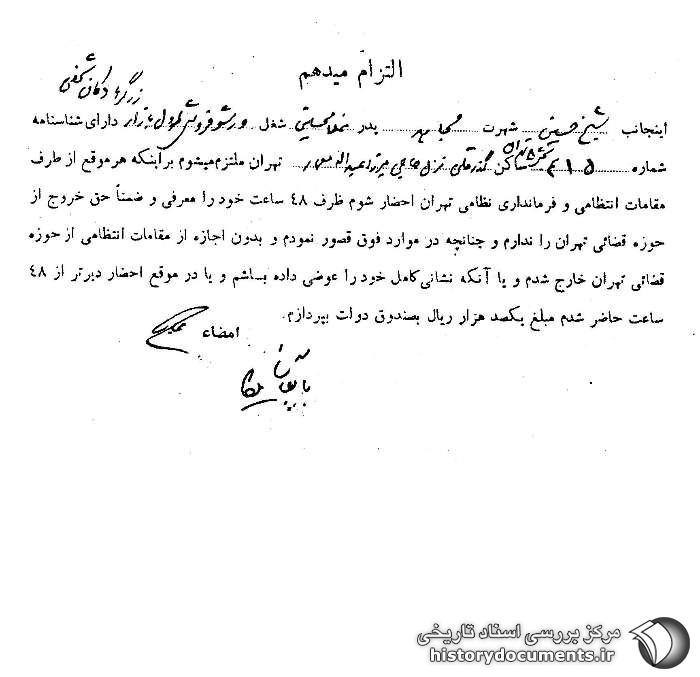 التزام میدهم
زرگرها دکان
اینجانب شیخ حسین شهرت پدر غلامحسین شغل ورشو فروش بازار دارای شناسنامه
شماره ۶۱۵ ساکن گذرقلی منزل حاجی میرزا عبداله تهران ملتزم میشوم برآینکه هر موقع از طرف
مقامات انتظامی و فرمانداری نظامی تهران احضار شوم ظرف ۴۸ ساعت خود را معرفی و ضمناً حق خروج از
حوزه قضائی تهران را ندارم و چنانچه در موارد فوق قصور نمودم و بدون اجازه از مقامات انتظامی از حوزه
قضائی تهران خارج شدم و یا آنکه نشانی کامل خود را عوضی داده باشم و یا در موقع احضار دیرتر از ۴۸
ساعت حاضر شدم مبلغ یکصد هزار ریال بصندوق دولت بپردازم.
امضاء
مرکز بررسی اسناد تاریخی
historydocuments.ir